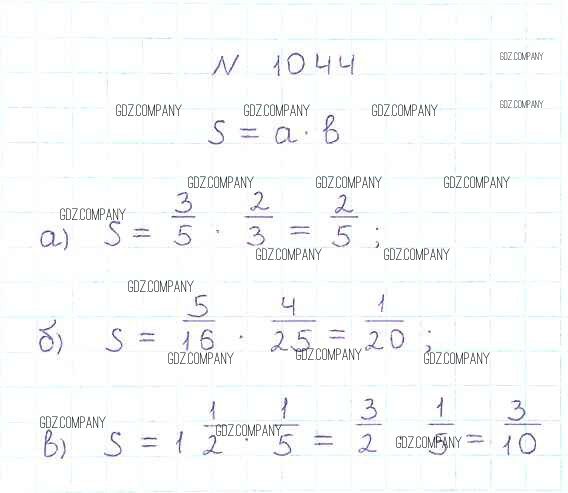 N 1044
GDZ.COMPANY
GDZ.COMPANY GDZ.COMPANY GDZ.COMPANY GDZ.COMPANY
S = a · b
GDZ.COMPANY GDZ.COMPANY GDZ.COMPANY
GDZ.COMPANY
а) S = 3/5 · 2/3 = 2/5 ;
GDZ.COMPANY GDZ.COMPANY
GDZ.COMPANY
б) S = 5/16 · 4/25 = 1/20 ;
GDZ.COMPANY GDZ.COMPANY GDZ.COMPANY
GDZ.COMPANY GDZ.COMPANY GDZ.COMPANY
в) S = 1 1/2 · 1/5 = 3/2 1/5 = 3/10